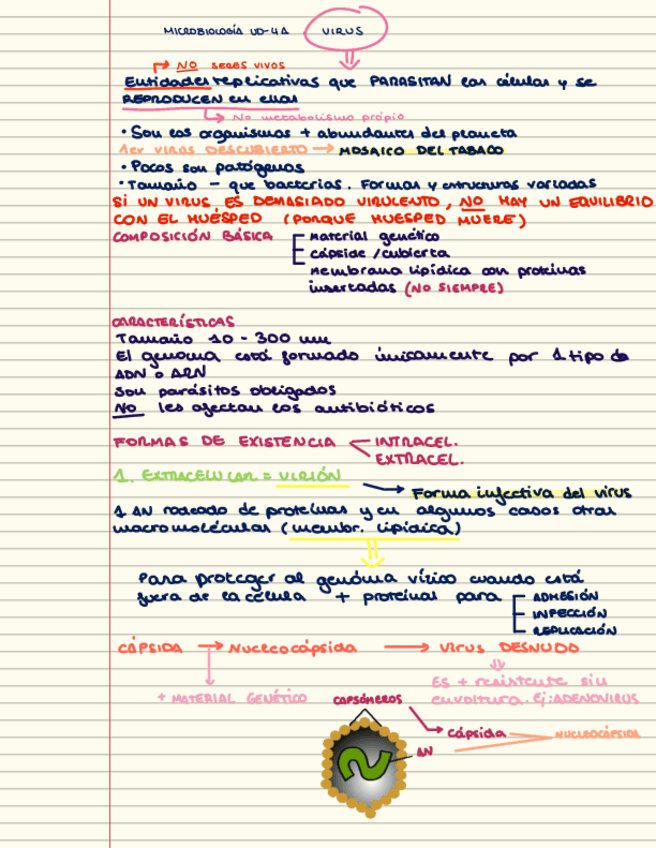 MICROBIOLOGÍA UD-4A VIRUS
NO SERES VIVOS
Entidades replicativas que PARASITAN las células y se
REPRODUCEN en ellas
No metabolismo própio
• Son los organismos + abundantes del planeta
1er VIRUS DESCUBIERTO → MOSAICO DEL TABACO
• Pocos son patógenos
• Tamaño - que bacterias. Formas y estructuras variadas
SI UN VIRUS ES DEMASIADO VIRULENTO, NO HAY UN EQUILIBRIO
CON EL HUÉSPED (PORQUE HUESPED MUERE)
COMPOSICIÓN BÁSICA material genético
cápside /cubierta
membrana lipídica con proteínas
insertadas (NO SIEMPRE)
CARACTERÍSTICAS
Tamaño 10 - 300 nm
El genoma está formado únicamente por 1 tipo de
ADN o ARN
Son parásitos obligados
NO les afectan los antibióticos
FORMAS DE EXISTENCIA INTRACEL.
EXTRACEL.
1. EXTRACELULAR = VIRIÓN
→ Forma infectiva del virus
1 AN rodeado de proteínas y en algunos casos otras
macromoléculas (membr. lipídica)
Para proteger al genóma vírico cuando está
fuera de la célula + proteínas para ADHESIÓN
INFECCIÓN
REPLICACIÓN
CÁPSIDA → Nucleocápsida → VIRUS DESNUDO
Es + resistente sin
+ MATERIAL GENÉTICO envoltura. Ej: ADENOVIRUS
CAPSÓMEROS
cápsida NUCLEOCÁPSIDA
AN